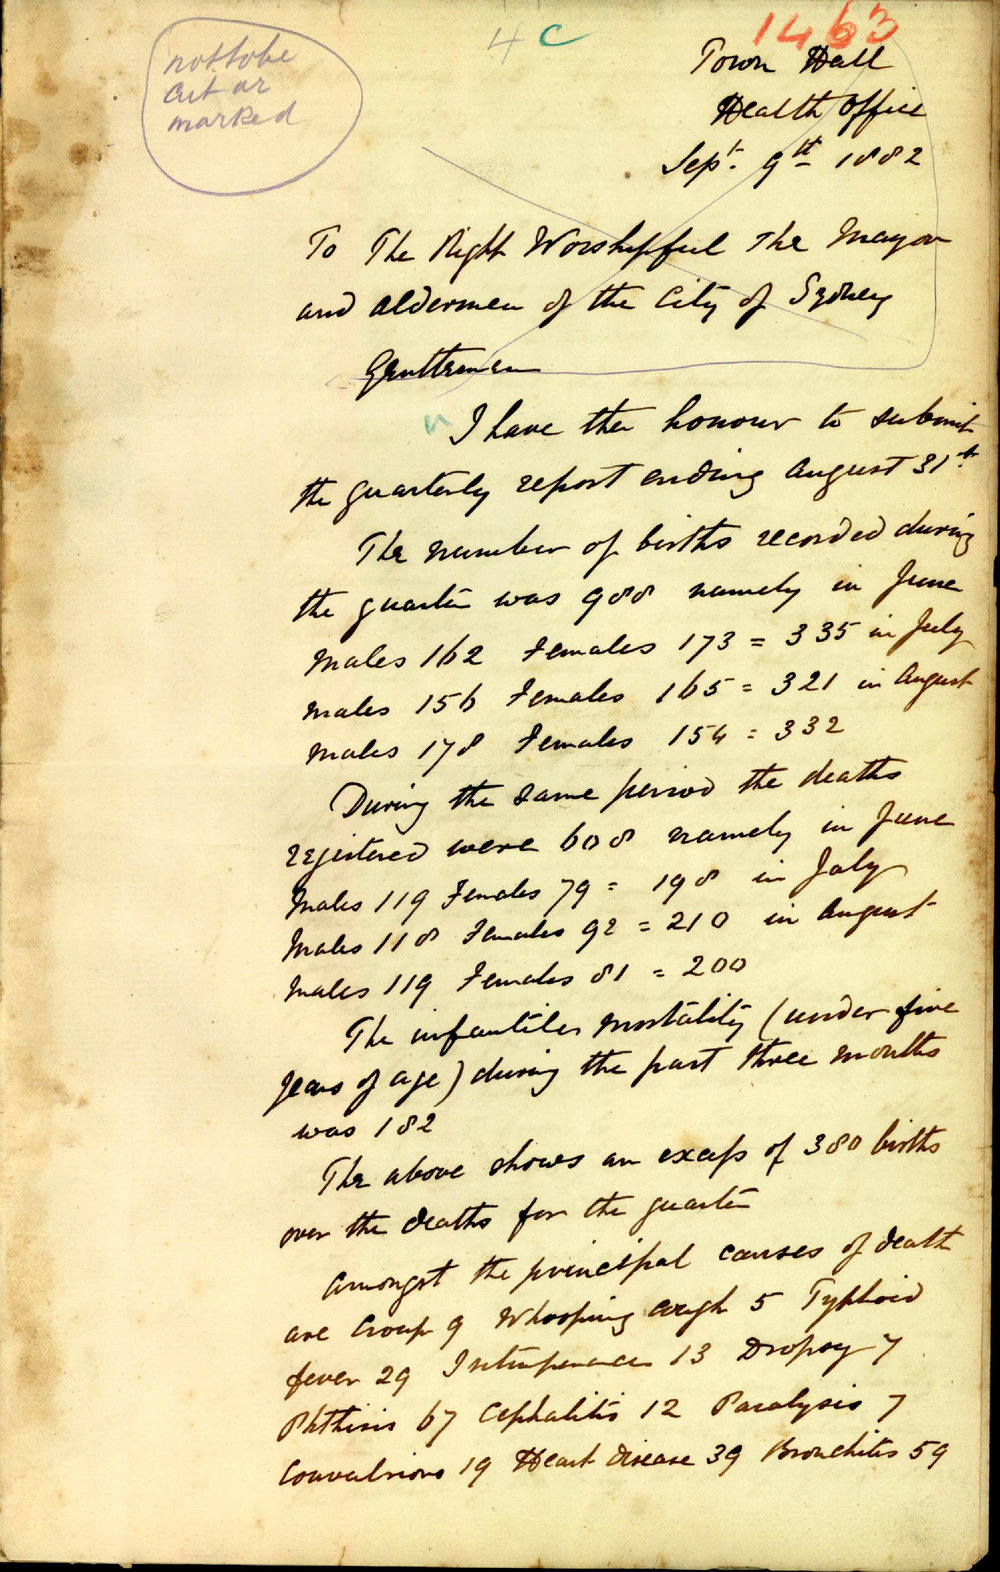 not to be
cut or
marked
4 C
1463
Town Hall
Health Office
Sept. 9th 1882
To The Right Worshipful The Mayor
and Aldermen of the City of Sydney
Gentlemen
I have the honour to submit
the quarterly report ending August 31st.
The number of births recorded during
the quarter was 988 namely in June
Males 162 Females 173 = 335 in July
Males 156 Females 165 = 321 in August
Males 178 Females 154 = 332
During the same period the deaths
registered were 608 namely in June
Males 119 Females 79 = 198 in July
Males 118 Females 92 = 210 in August
Males 119 Females 81 = 200
The infantile mortality (under five
years of age) during the past three months
was 182
The above shows an excess of 380 births
over the deaths for the quarter
Amongst the principal causes of death
are Croup 9 Whooping cough 5 Typhoid
fever 29 Intemperance 13 Dropsy 7
Phthisis 67 Cephalitis 12 Paralysis 7
Convulsions 19 Heart disease 39 Bronchitis 59